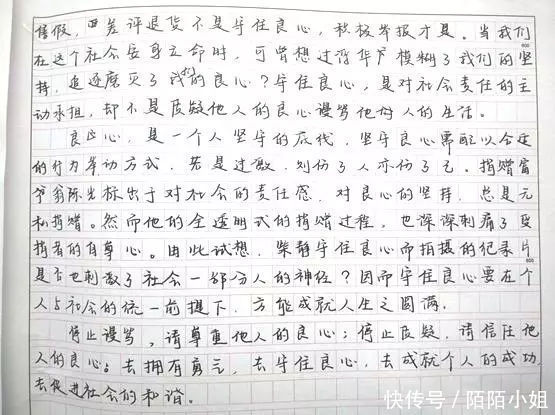 售假,口差评退货不是守住良心,积极举报才是。当我们
在这个社会安身立命时,可曾想过浮华模糊了我们的坚
持,追逐磨灭了我们的良心?守住良心,是对社会责任的主
动承担,却不是质疑他人的良心谩骂他人的生活。
良心,是一个人坚守的底线,坚守良心需配以合适
的行为举动方式,若是过激,划伤了人亦伤了己。捐赠富
翁陈光标出于对社会的责任感,对良心的坚持,总是无
私捐赠。然而他的全透明式的捐赠过程,也深深刺痛了受
捐者的自尊心。由此试想,柴静守住良心而拍摄的纪录片
800
是否也刺激了社会一部分人的神经?因而守住良心要在个
人与社会的统一前提下,方能成就人生之圆满。
停止谩骂,请尊重他人的良心;停止质疑,请信任他
人的良心。去拥有勇气,去守住良心,去成就个人的成功,
去促进社会的和谐。
快传号/陌陌小姐